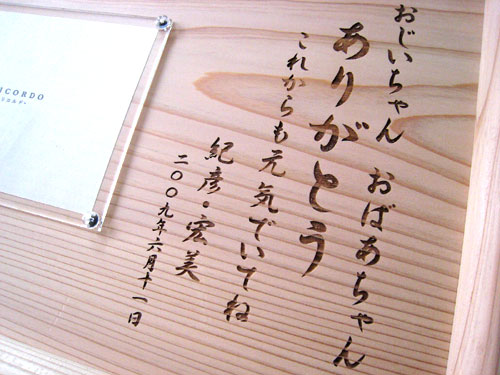 おじいちゃん おばあちゃん
ありがとう
これからも元気でいてね
紀彦・宏美
二〇〇九年六月十一日
ICORDO